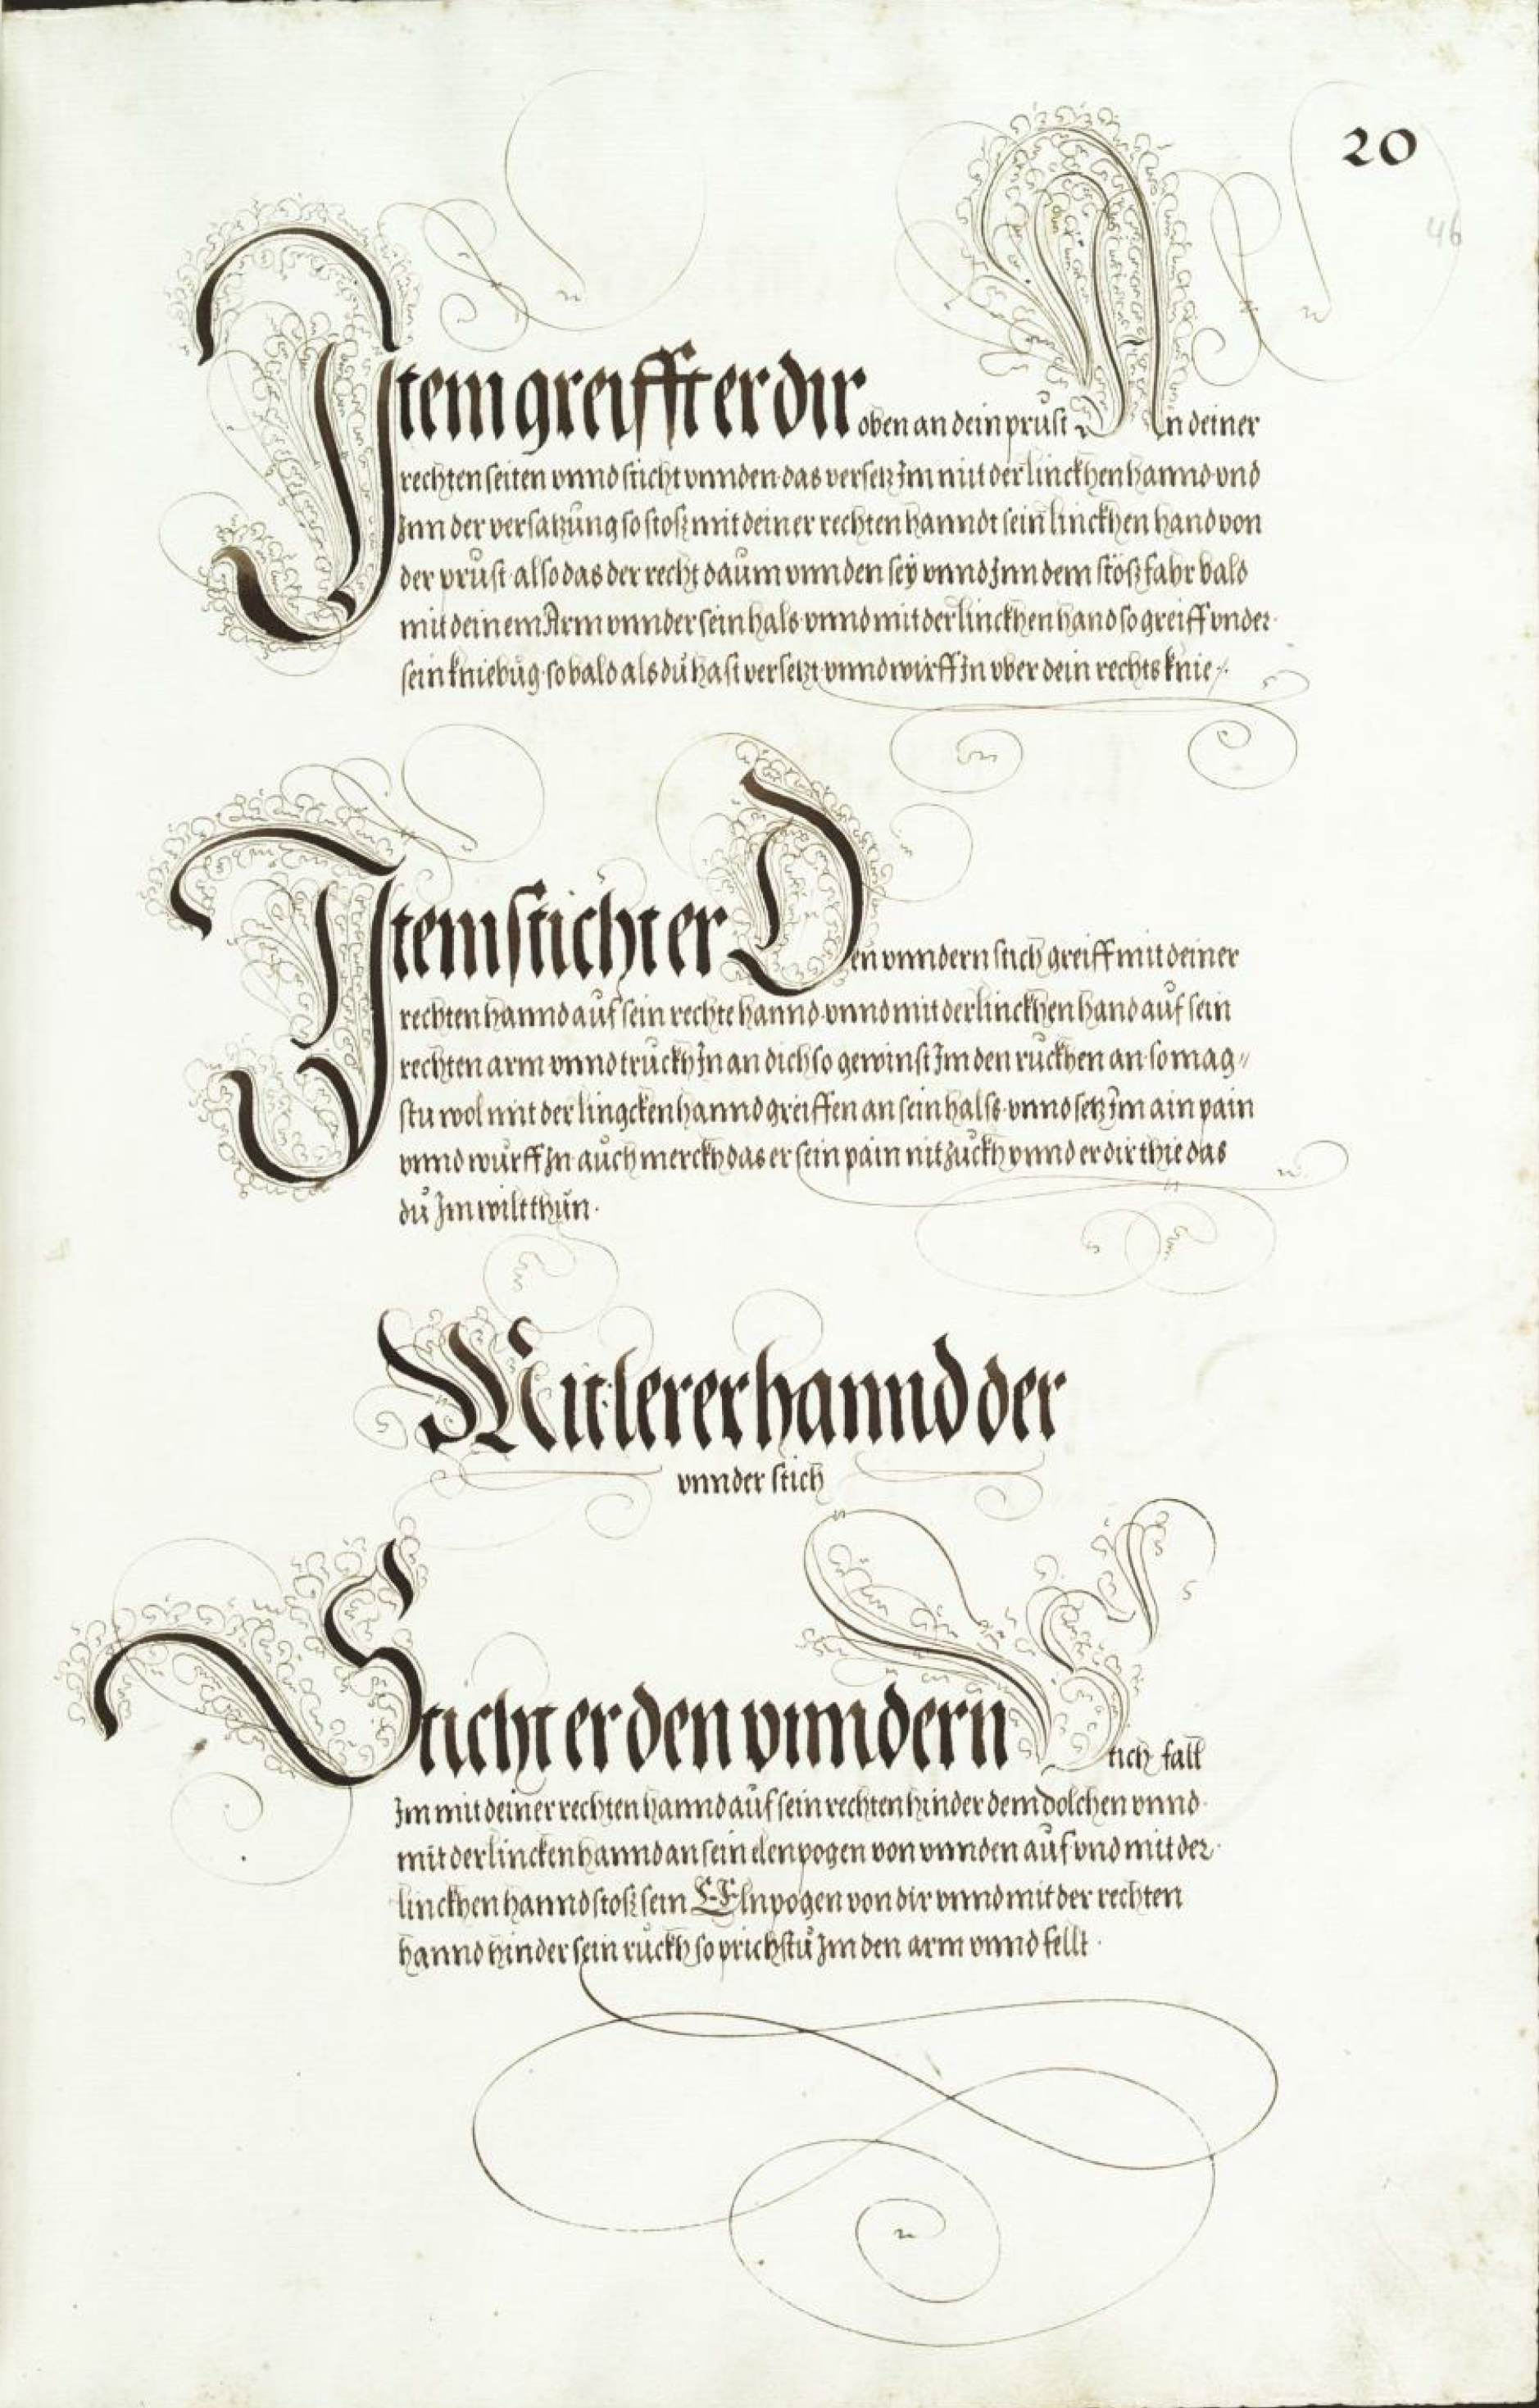 20
46
Item greifft er dir oben an dein prust An deiner
rechten seiten vnnd sticht vnnden· das versetz Im mit der linckhen hannd vnd
Inn der versatzung so stoß mit deiner rechten hanndt sein linckhen hand von
der prust also das der recht daum vnnden seÿ vnnd Inn dem stoß fahr bald
mit deinem Arm vnnder sein hals vnnd mit der linckhen hand so greiff vnder·
sein kniebüg· so bald als du hast versetzt vnnd wirff In vber dein rechts knie·/.
Item sticht er Den vnndern stich greiff mit deiner
rechten hannd auf sein rechte hannd· vnnd mit der linckhen hand auf sein
rechten arm vnnd truckh In an dich so gewinst Im den ruckhen an· so mag〃
stu wol mit der lingcken hannd greiffen an sein halss· vnnd setz Im ain pain
vnnd würff In auch merckh das er sein pain nit zuckh vnnd er dir thie das
du Im wilt thun·
Mitlerer hannd der
vnnder stich
Sticht er den vnndern Stich fall
Im mit deiner rechten hannd auf sein rechten hinder dem dolchen vnnd·
mit der lincken hannd an sein elenpogen von vnnden auf vnd mit der·
linckhen hannd stoß sein Elnpogen von dir vnnd mit der rechten
hannd hinder sein ruckh so prichstu Im den arm vnnd fellt·